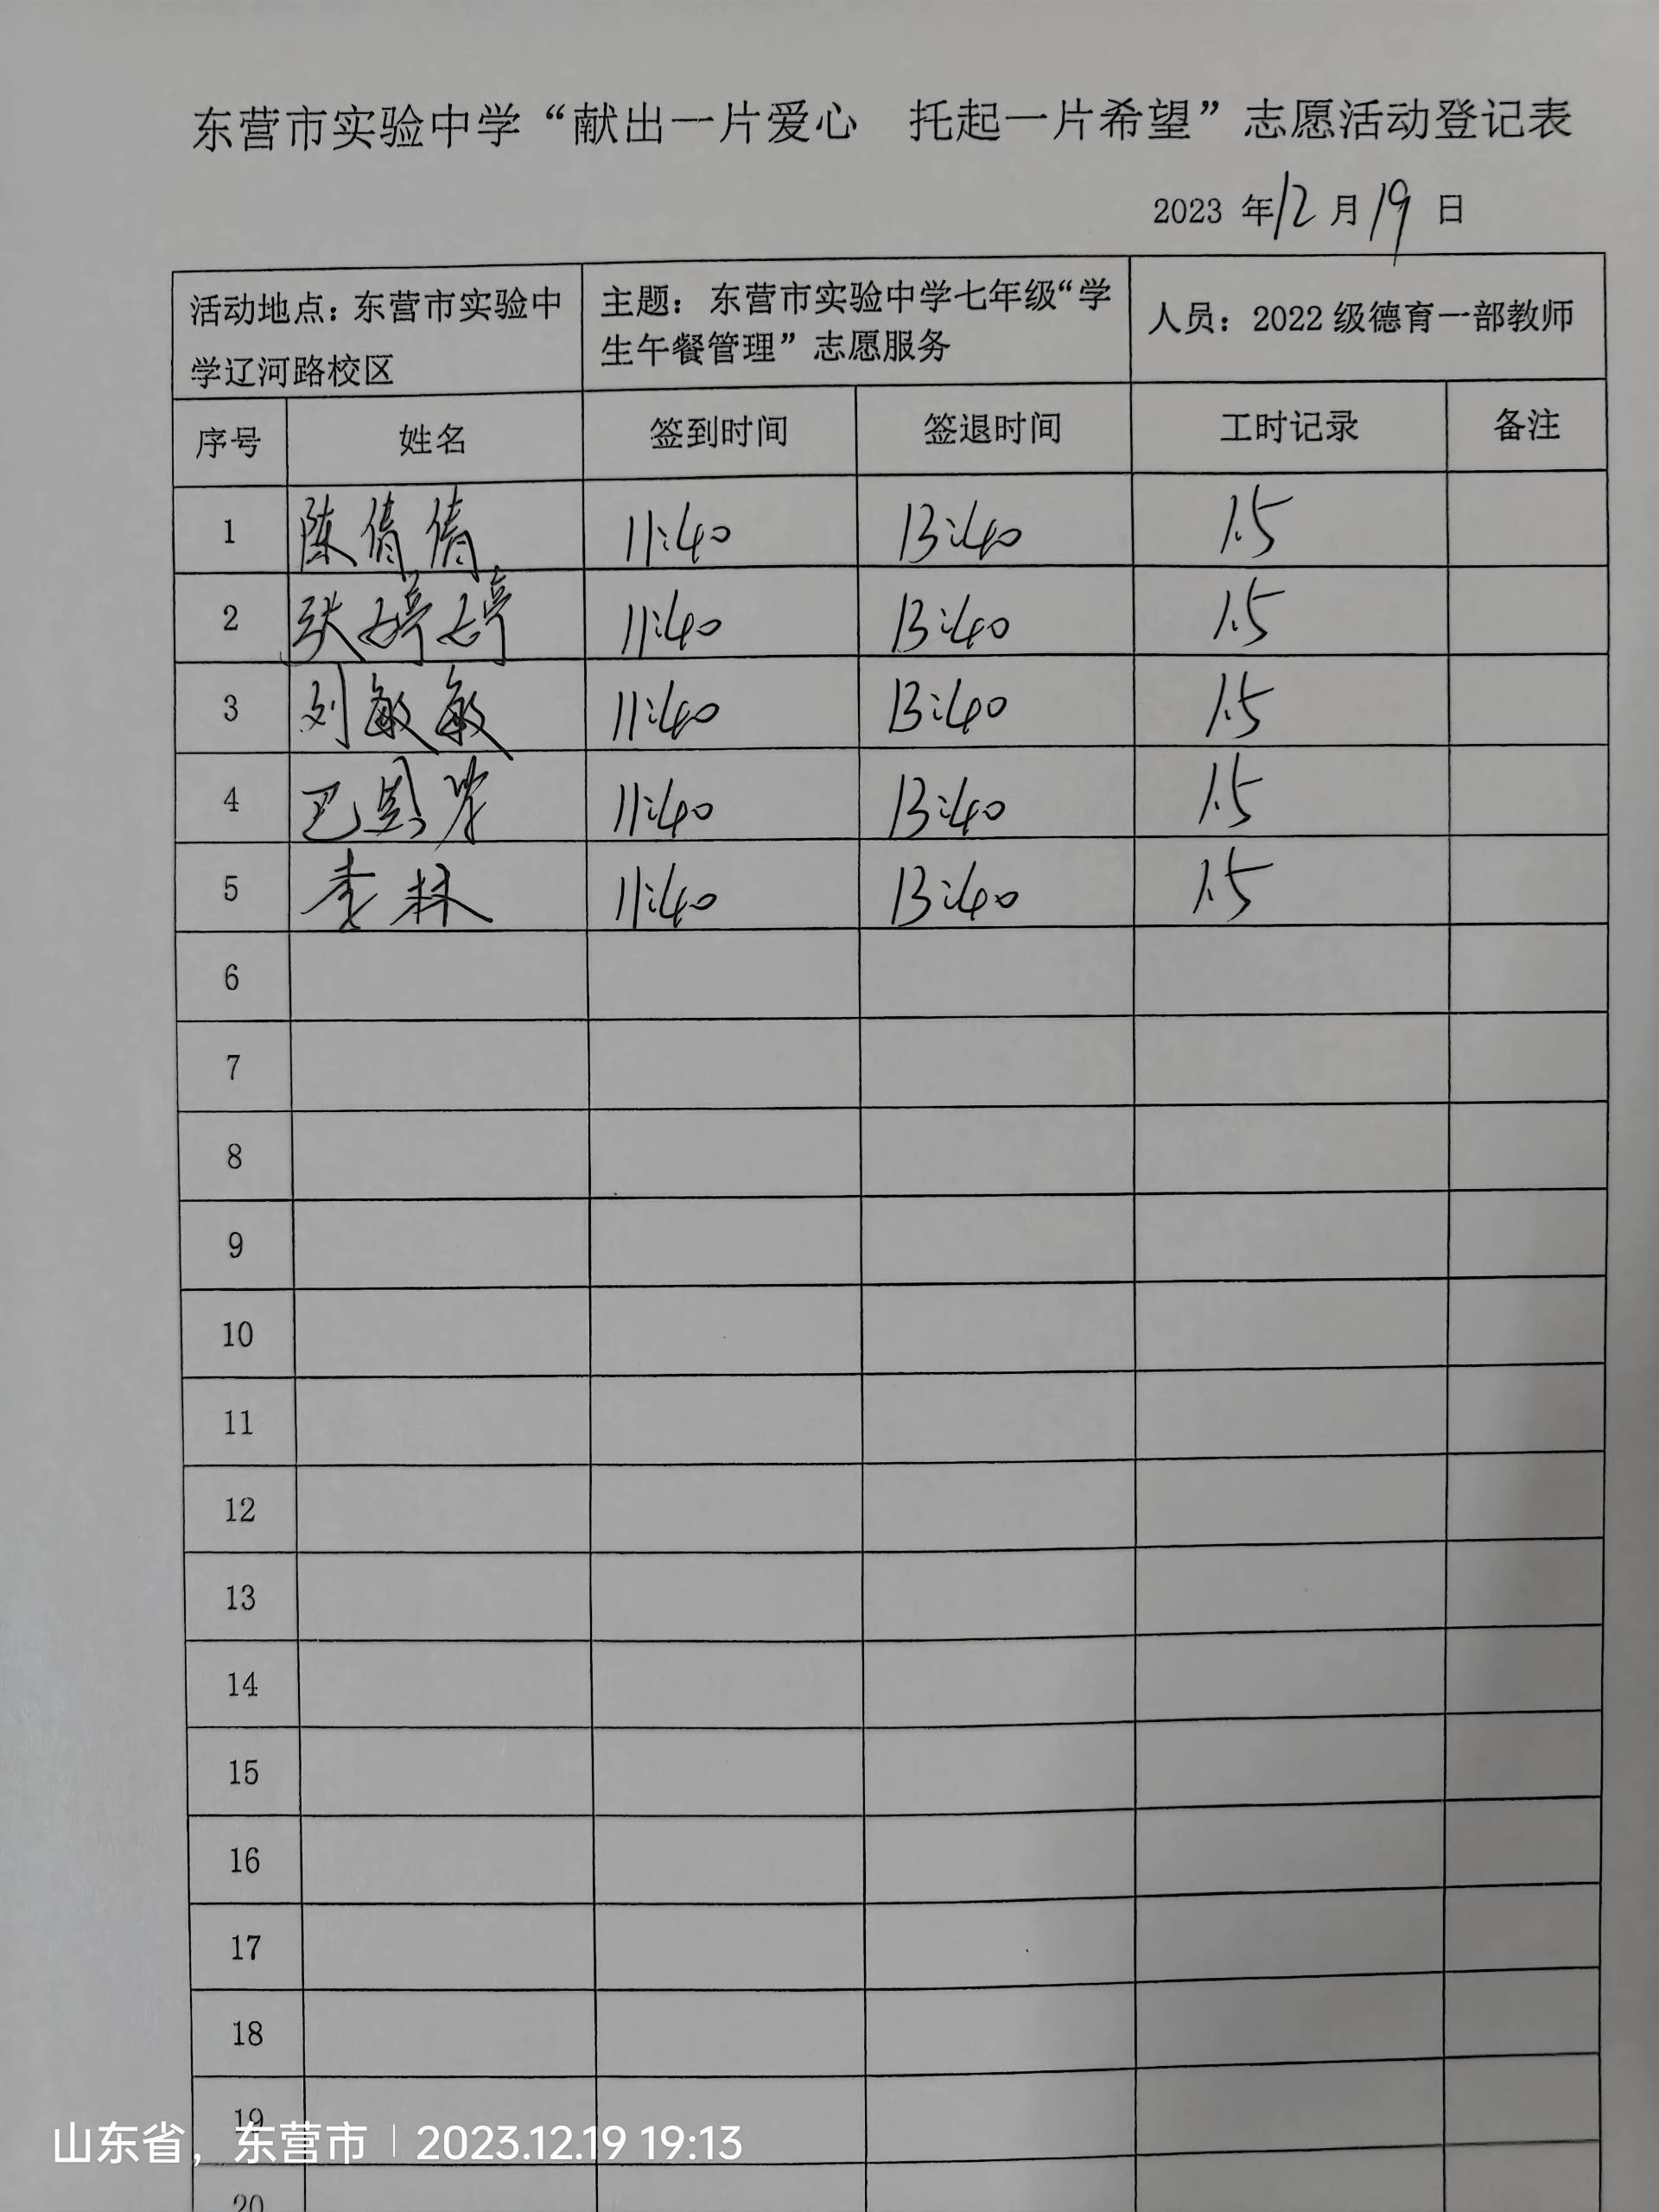 东营市实验中学“献出一片爱心 托起一片希望”志愿活动登记表
2023 年 12 月 19 日
活动地点：东营市实验中
学辽河路校区
主题：东营市实验中学七年级“学
生午餐管理”志愿服务
人员：2022 级德育一部教师
序号 姓名 签到时间 签退时间 工时记录 备注
1 陈倩倩 11:40 13:40 1.5
2 张婷婷 11:40 13:40 1.5
3 刘敏敏 11:40 13:40 1.5
4 巴 11:40 13:40 1.5
5 李林 11:40 13:40 1.5
6
7
8
9
10
11
12
13
14
15
16
17
18
19
20
山东省，东营市 | 2023.12.19 19:13